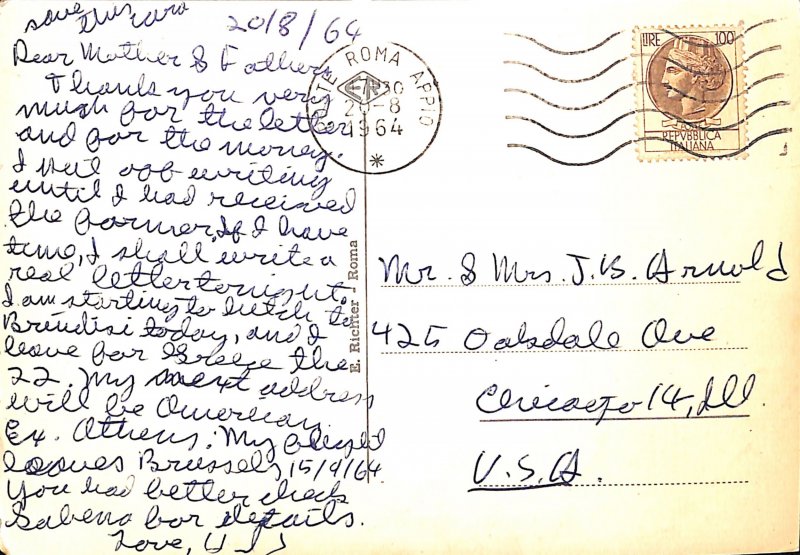 save
this card
20/8/64
Dear Mother & Father,
Thank you very
much for the letter
and for the money.
I put off writing
until I had received
the former. If I have
time, I shall write a
real letter tonight.
I am starting to hitch to
Brindisi today, and I
leave for Greece the
22. My next address
will be American
Ex. Athens. My flight
leaves Brussels 15/9/64
You had better check
Sabena for details.
Love,
E. Richter - Roma
ROMA APPIO
20-8
1964
LIRE 100
REPVBBLICA
ITALIANA
Mr. & Mrs. J. B. Arnold
425 Oakdale Ave
Chicago 14, Ill
U.S.A.